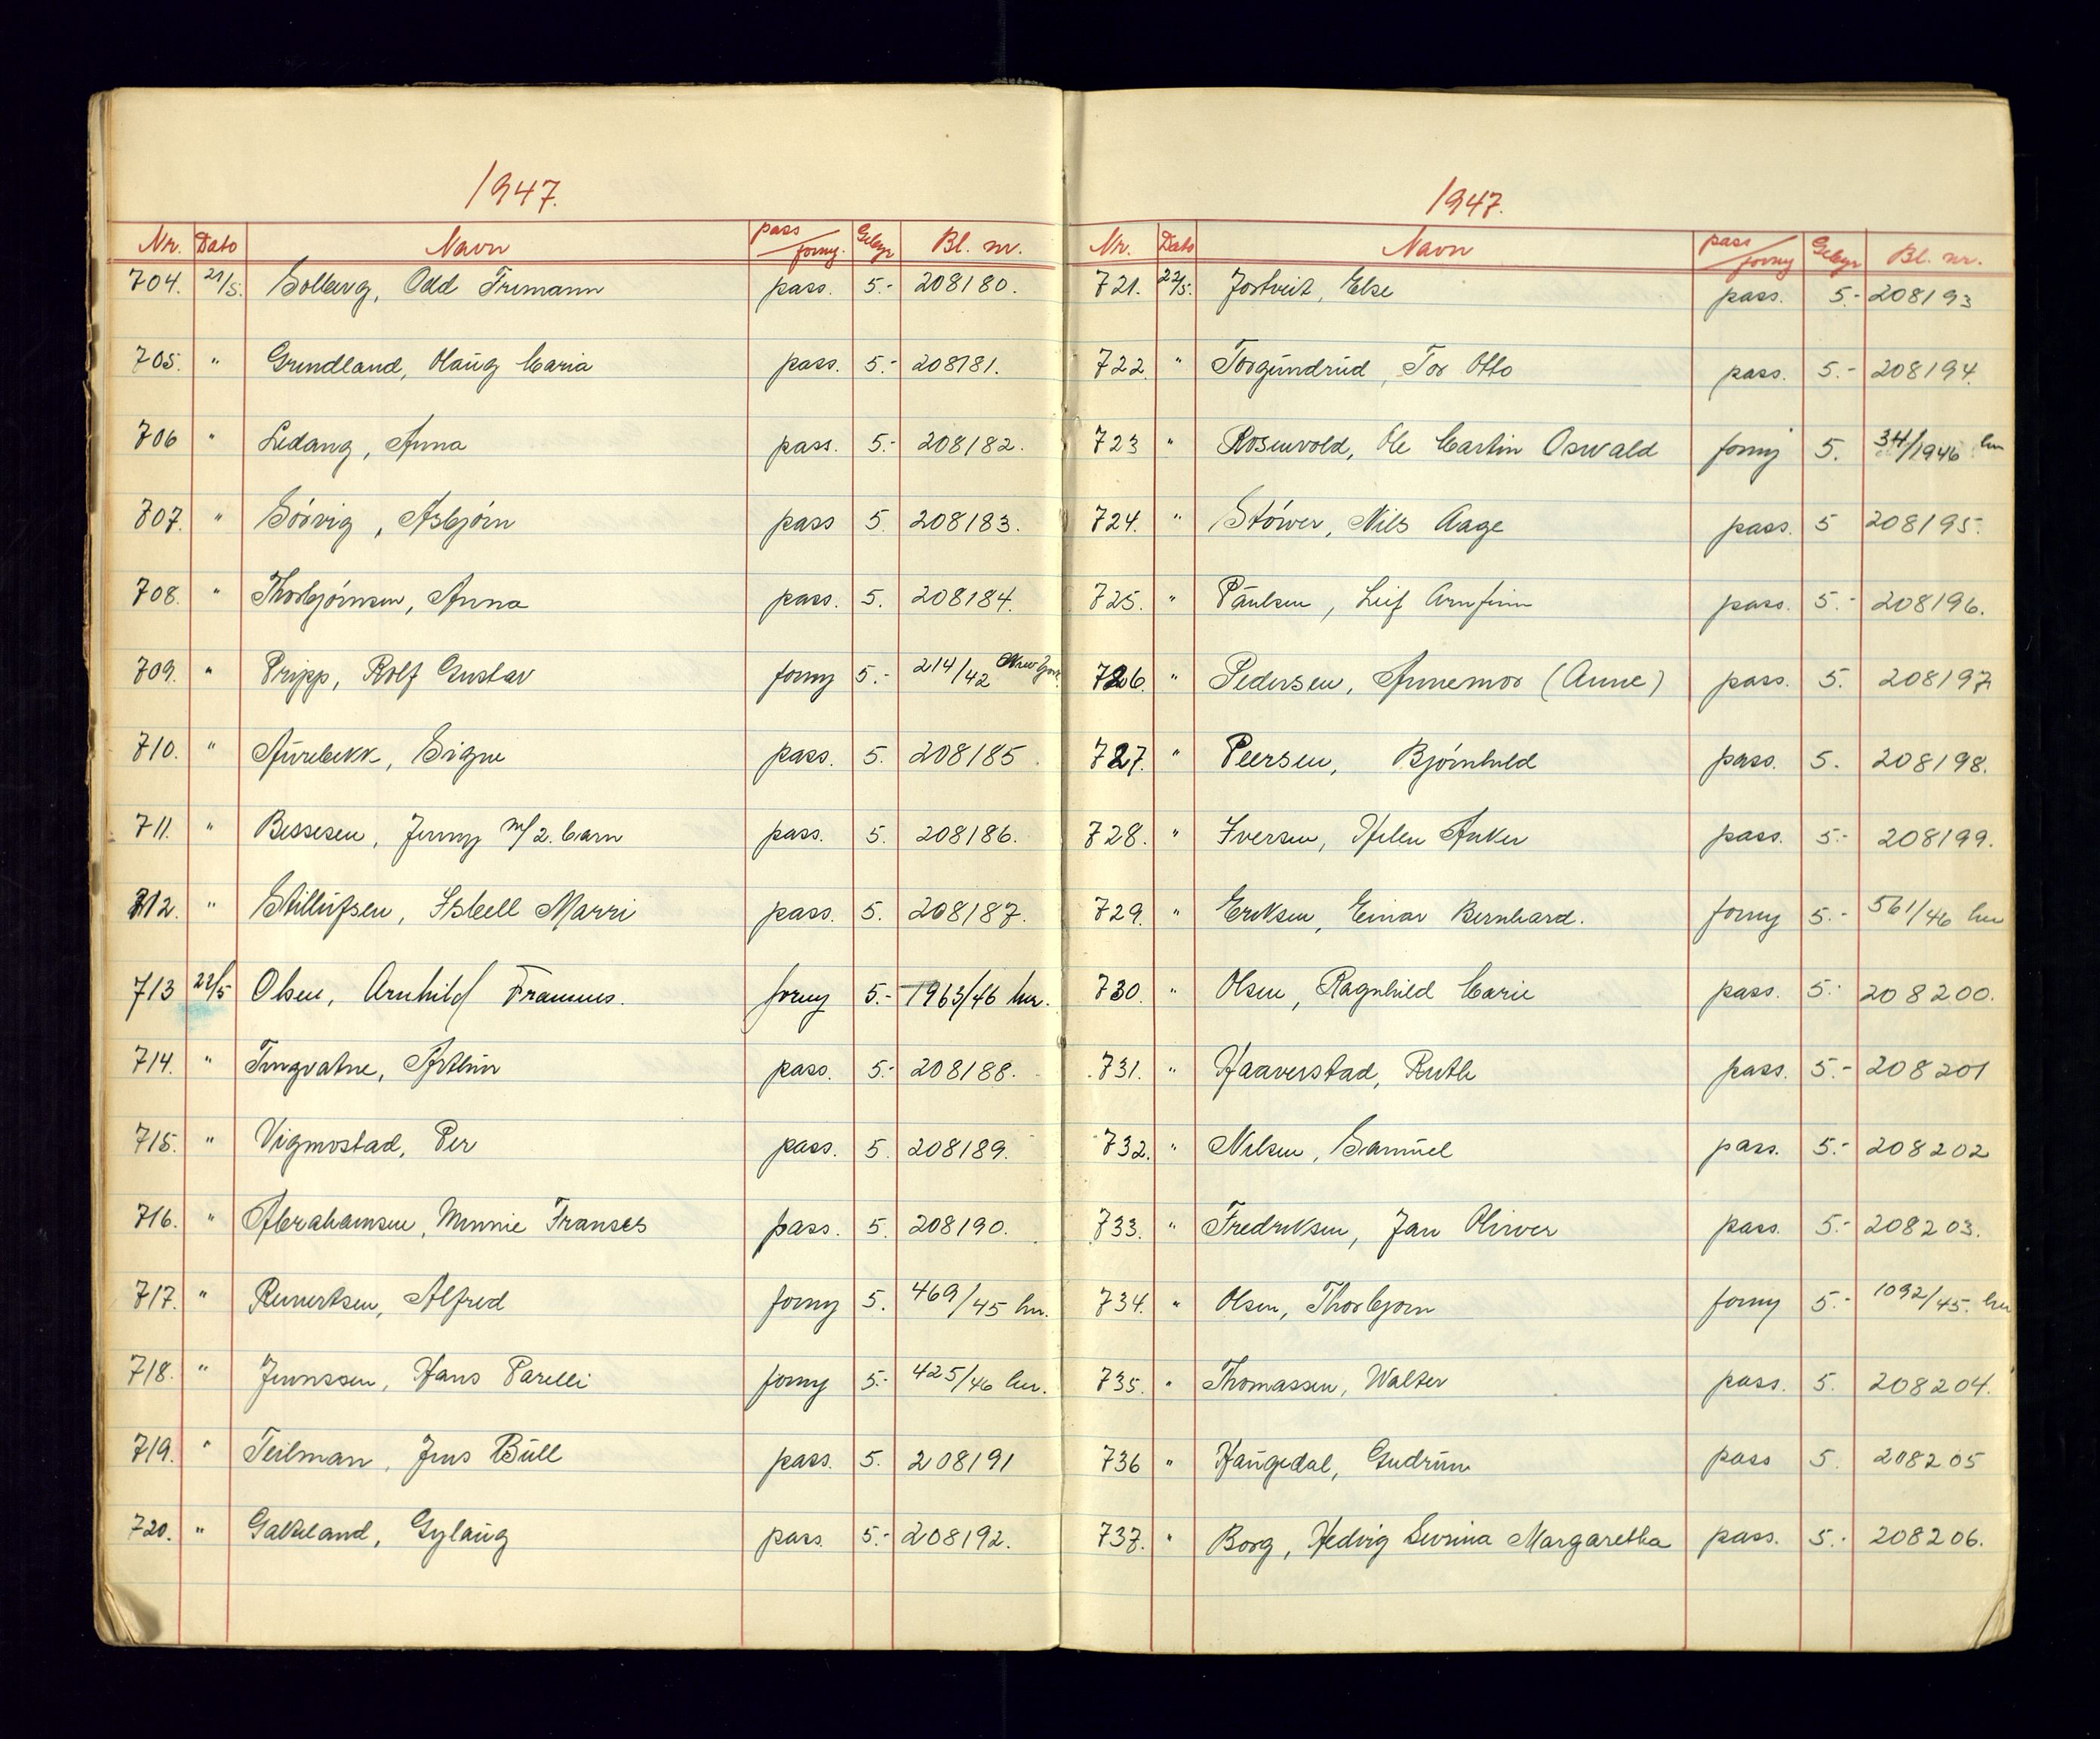 1947.
Nr. Dato Navn pass/forny. Gebyr Bl. nr.
704. 21/5. Solberg, Odd Tremann pass. 5.- 208180.
705. " Grundland, Olaug Maria pass. 5.- 208181.
706 " Ledang, Anna pass. 5.- 208182.
707. " Sörvig, Asbjörn pass 5. 208183.
708. " Thorbjörnsen, Anna pass. 5. 208184.
709. " Pripp, Rolf Gustav forny 5.- 214/42 New York
710. " Aurebekk, Signe pass. 5. 208185.
711. " Bessesen, Jenny m/2. barn pass. 5. 208186.
712. " Stillufsen, Isbell Marri pass. 5. 208187.
713 22/5 Olsen, Arnhild forny 5.- 1963/46 her.
714. " Tingvatne, Arthur pass. 5.- 208188.
715. " Vigmostad, Per pass. 5. 208189.
716. " Abrahamsen, Minnie Franses pass. 5. 208190.
717. " Reinertsen, Alfred forny 5. 469/45 her.
718. " Jenssen, Hans Parelli forny 5.- 425/46 her.
719. " Teilman, Jens Bull pass. 5. 208191
720. " Galteland, Gylaug pass. 5.- 208192.
1947.
Nr. Dato Navn pass/forny Gebyr Bl. nr.
721. 22/5. Jostveit, Else pass. 5.- 208193
722. " Torgundrud, Tor Otto pass. 5.- 208194.
723 " Rosenvold, Ole Martin Oswald forny 5. 34/1946 her
724. " Stöwer, Nils Aage pass. 5 208195.
725. " Paulsen, Leif Arnfinn pass. 5.- 208196.
726. " Pedersen, Annemor (Anne) pass. 5. 208197
727. " Peersen, Björnhild pass. 5. 208198.
728. " Iversen, Helen Anker pass. 5.- 208199.
729. " Eriksen, Einar Bernhard. forny 5.- 561/46 her
730. " Olsen, Ragnhild Marie pass. 5.- 208200.
731. " Haaverstad, Ruth pass. 5.- 208201
732. " Nilsen, Samuel pass. 5.- 208202
733. " Fredriksen, Jan Oliver pass. 5.- 208203.
734. " Olsen, Thorbjorn forny 5.- 1092/45. her
735. " Thomassen, Walter pass. 5. 208204.
736 " Haugedal, Gudrun pass 5. 208205
737. " Borg, Hedvig Severina Margaretha pass. 5.- 208206.